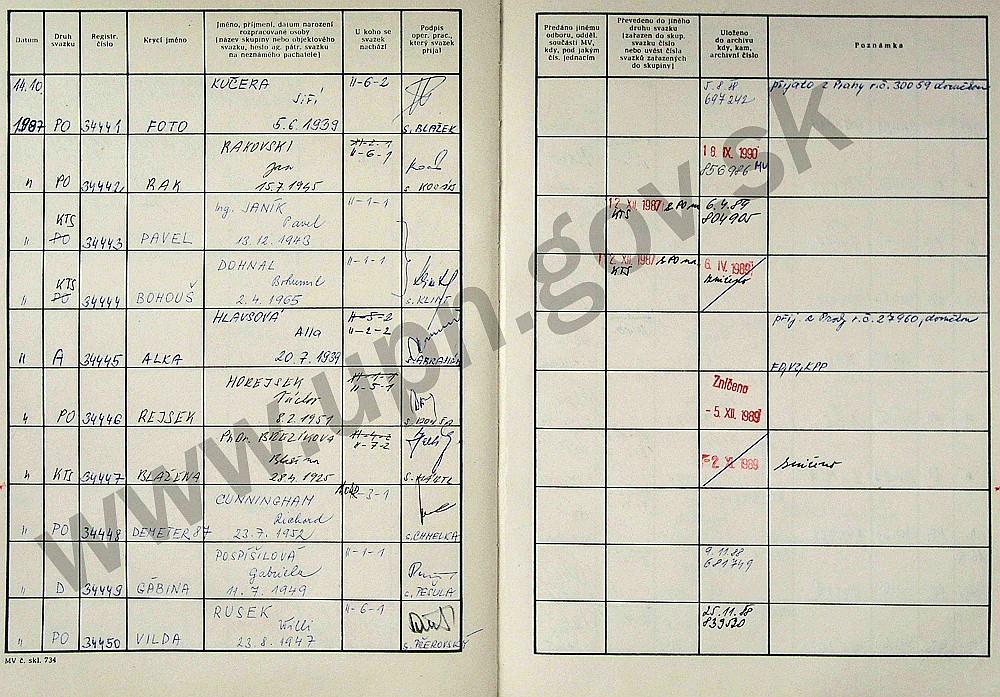 Datum
Druh svazku
Registr. číslo
Krycí jméno
Jméno, příjmení, datum narození
rozpracované osoby
(název skupiny nebo objektového
svazku, heslo ag. pátr. svazku
na neznámého pachatele)
U koho se
svazek
nachází
Podpis
oper. prac.,
který svazek
přijal
Předáno jinému
odboru, odděl.
součásti MV,
kdy, pod jakým
čís. jednacím
Převedeno do jiného
druhu svazku
(zařazen do skup.
svazku číslo
nebo uvést čísla
svazků zařazených
do skupiny)
Uloženo
do archivu
kdy, kam,
archivní číslo
Poznámka
14.10 KUČERA II-6-2 5.8.88 přijato z Prahy r.č. 30059
Jiří 697242
1987 PO 34441 FOTO 5.6.1939 s. BLAŽEK
RAKOVSKI II-2-1 18. IX. 1990
Jan II-6-1 856986 MV
" PO 34442 RAK 15.7.1945
Ing. JANÍK II-1-1 12. XII. 1987 s PO na 6.4.89
KTS Pavel KTS 804905
" PO 34443 PAVEL 13.12.1943
DOHNAL II-1-1 2. XII. 1987 s PO na 6. IV. 1989
KTS Bohumil KTS zničeno
" PO 34444 BOHOUŠ 2.4.1965 s. KLIMT
HLAVSOVÁ II-5-2 přij. z Prahy r.č. 27960,
Alla II-2-2
" A 34445 ALKA 20.7.1939 s. ABRAHÁM
HOREJSEK II-1-1 Zničeno
II-5-1 - 5. XII. 1989
" PO 34446 REJSEK 8.2.1951
PhDr. BŘEZINOVÁ II-7-2
- 2. XI. 1989 zničeno
" KTS 34447 BLAŽENA 28.4.1925
CUNNINGHAM II-3-1
Richard
" PO 34448 DEMETER 87 23.7.1952 s. CHMELKA
POSPÍŠILOVÁ II-1-1 9.11.88
Gabriela 681749
" D 34449 GÁBINA 11.7.1949 s. PEŠULA
RUSEK II-6-1 25.11.88
Willi 839530
" PO 34450 VILDA 23.8.1947 s. PŘEROVSKÝ
MV č. skl. 734
www.upn.gov.sk